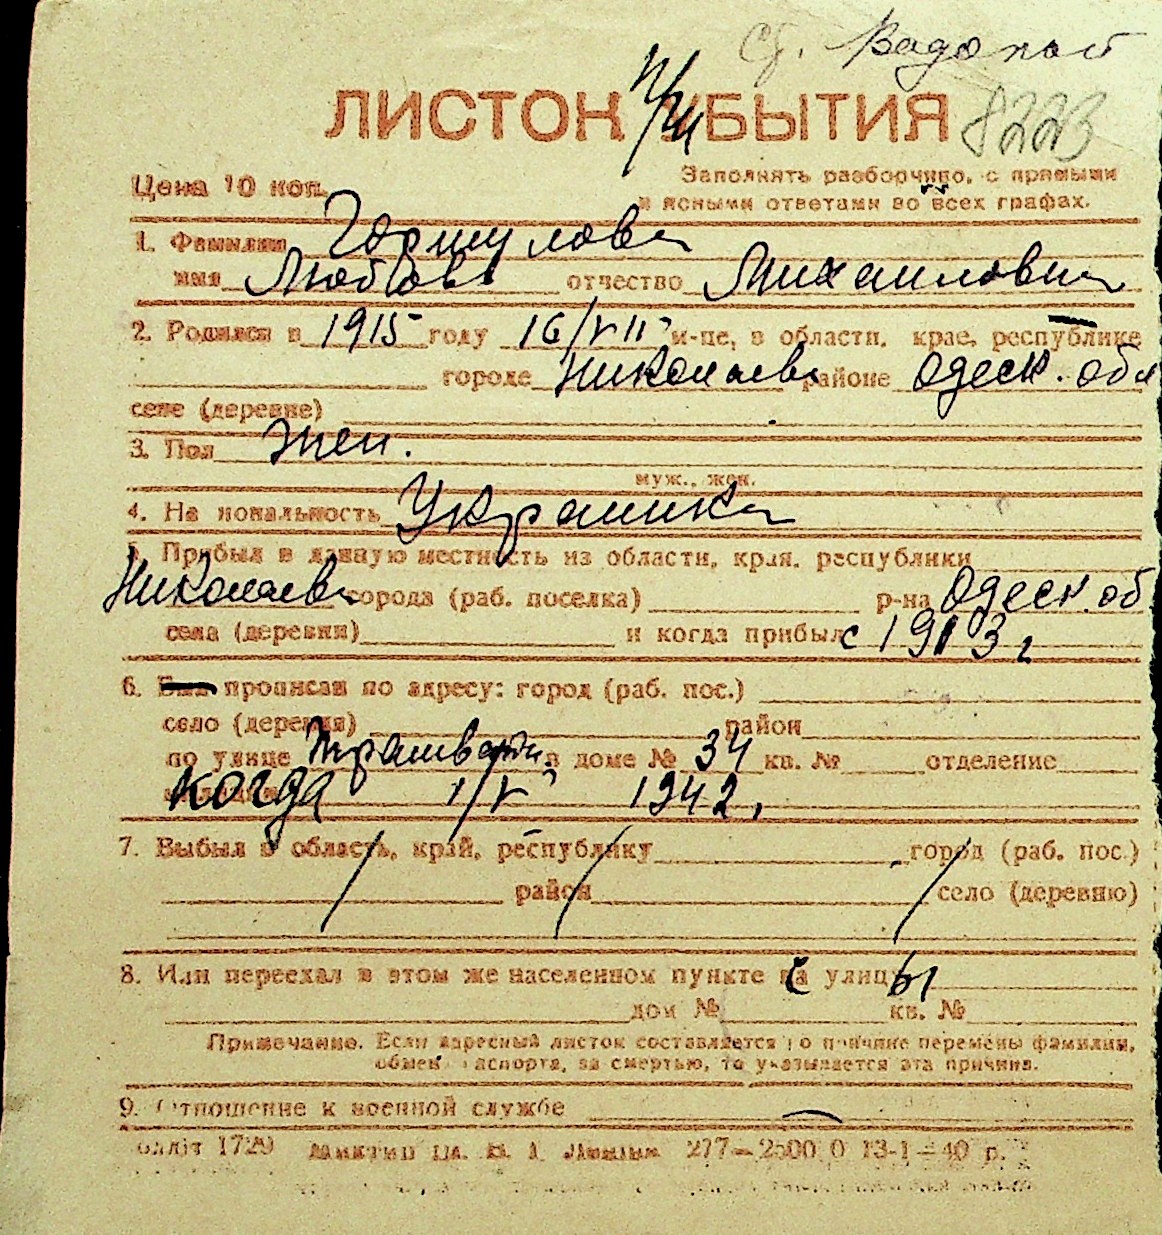 Ст. Водопой
ЛИСТОК УБЫТИЯ 8223
Цена 10 коп. Заполнять разборчиво, с прямыми
и ясными ответами во всех графах.
1. Фамилия
имя Любовь отчество Михаиловна
2. Родился в 1915 году 16/VII м-це, в области, крае, республике
городе Николаев районе Одеск. обл
селе (деревне)
3. Пол жен.
муж., жен.
4. Национальность Украинка
5. Прибыл в данную местность из области, края, республики
Николаев города (раб. поселка) р-на Одеск. об
села (деревни) и когда прибыл с
6. Был прописан по адресу: город (раб. пос.)
село (деревня) район
по улице в доме № 34 кв. № отделение
когда 1/V 1942,
7. Выбыл в область, край, республику город (раб. пос.)
район село (деревню)
8. Или переехал в этом же населенном пункте с улицы
дом № кв. №
Примечание. Если адресный листок составляется по причине перемены фамилии,
обмен паспорта, за смертью, то указывается эта причина.
9. Отношение к военной службе
277—2500 0 13-1—40 р.